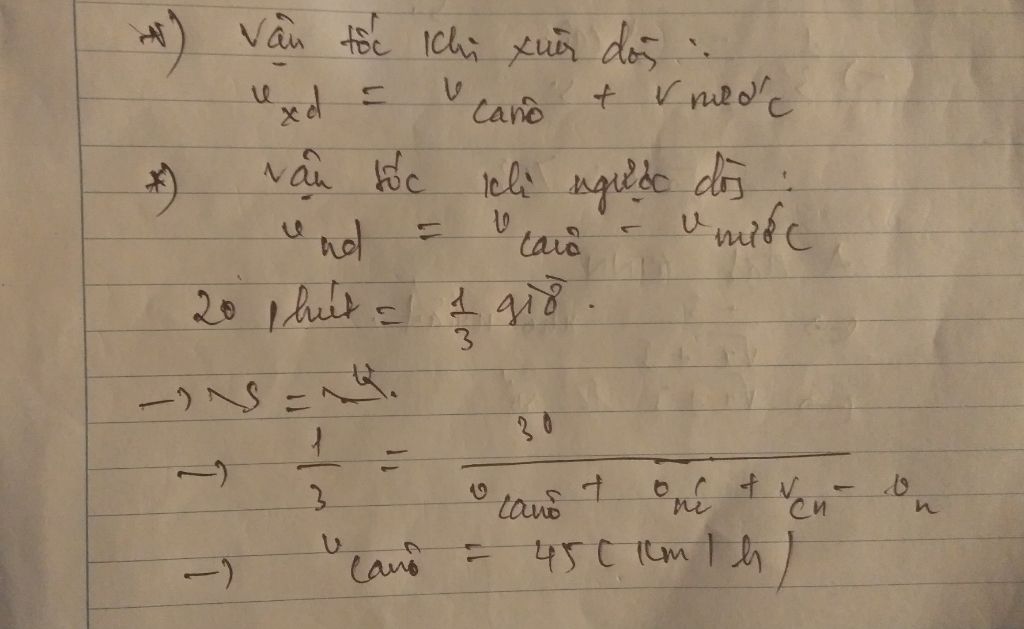 *) Vận tốc khi xuôi dòng :
v xd = v canô + v nước
*) vận tốc khi ngược dòng :
v nd = v canô - v nước
20 phút = 1/3 giờ.
→ 1/3 = 30 / (v canô + v nc + v cn - v n)
→ v canô = 45 (km/h)